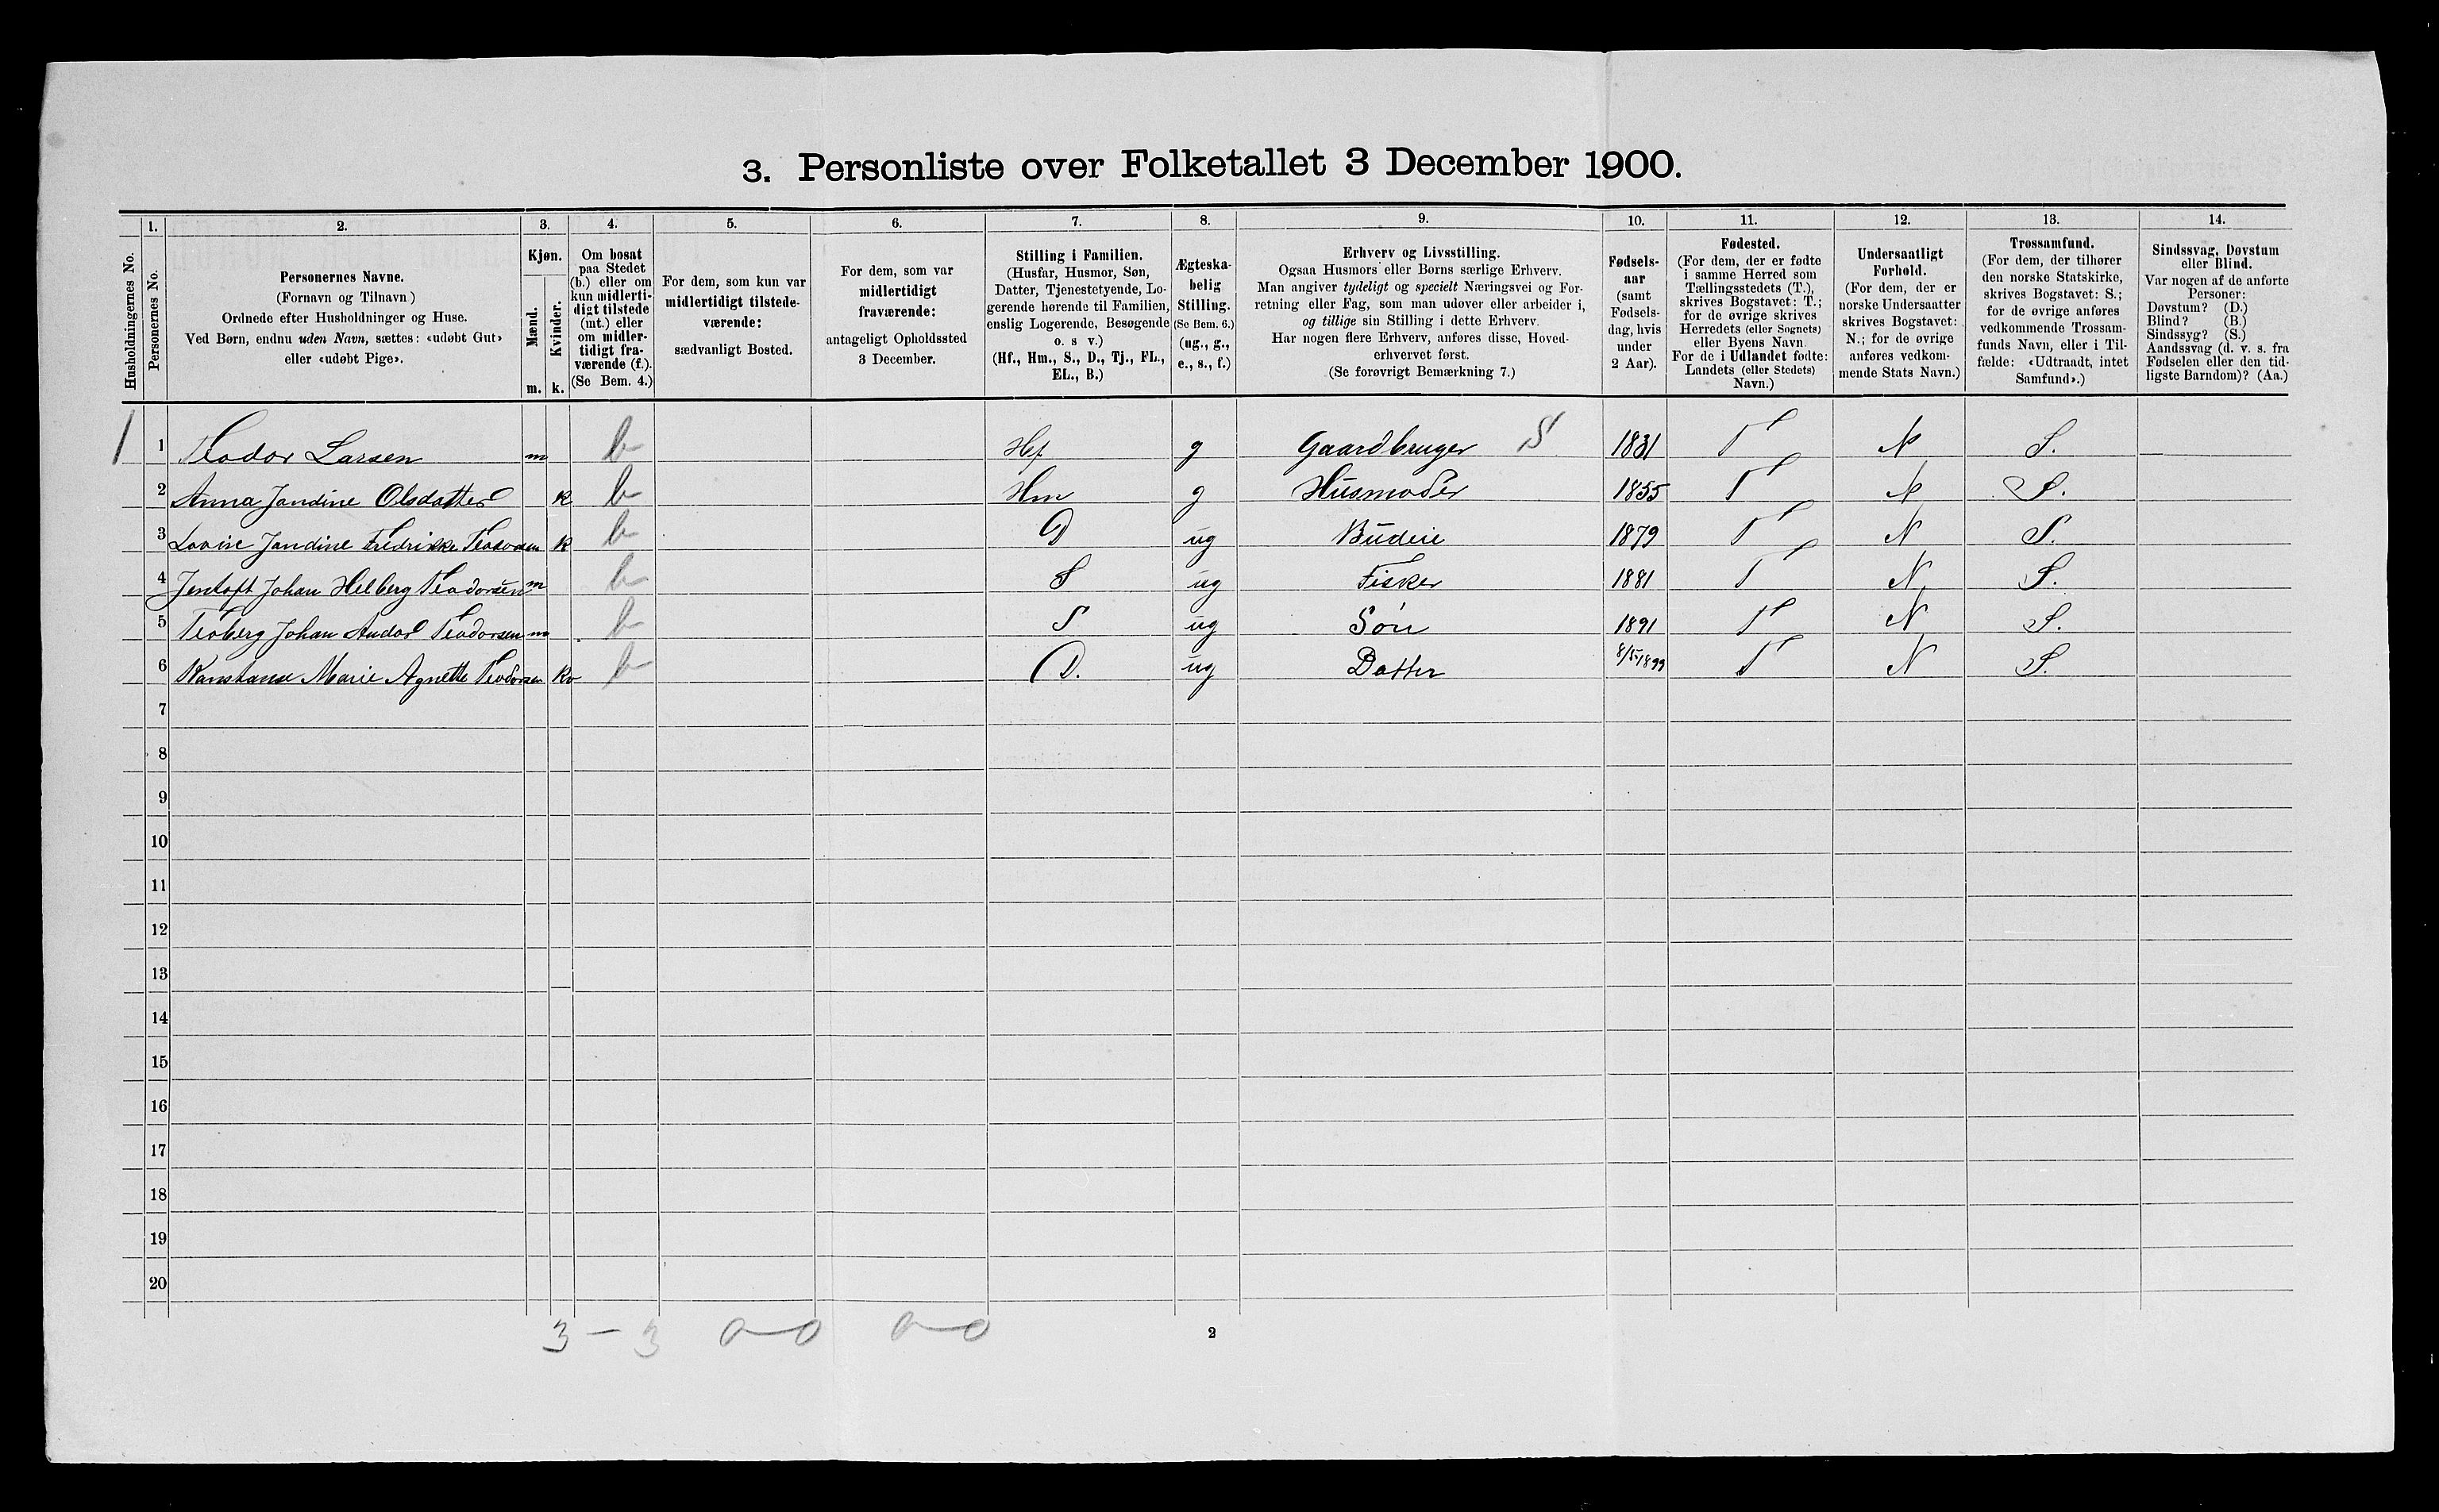 3. Personliste over Folketallet 3 December 1900.
Husholdningernes No.
1. Personernes No.
2.
Personernes Navne.
(Fornavn og Tilnavn)
Ordnede efter Husholdninger og Huse.
Ved Børn, endnu uden Navn, sættes: «udøbt Gut»
eller «udøbt Pige».
3.
Kjøn.
Mænd. m.
Kvinder. k.
4.
Om bosat
paa Stedet
(b.) eller om
kun midlerti-
digt tilstede
(mt.) eller
om midler-
tidigt fra-
værende (f.).
(Se Bem. 4.)
5.
For dem, som kun var
midlertidigt tilstede-
værende:
sædvanligt Bosted.
6.
For dem, som var
midlertidigt
fraværende:
antageligt Opholdssted
3 December.
7.
Stilling i Familien.
(Husfar, Husmor, Søn,
Datter, Tjenestetyende, Lo-
gerende hørende til Familien,
enslig Logerende, Besøgende
o. s v.)
(Hf., Hm., S., D., Tj., FL.,
EL., B.)
8.
Ægteska-
belig
Stilling.
(Se Bem. 6.)
(ug., g.,
e., s., f.)
9.
Erhverv og Livsstilling.
Ogsaa Husmors eller Børns særlige Erhverv.
Man angiver tydeligt og specielt Næringsvei og For-
retning eller Fag, som man udøver eller arbeider i,
og tillige sin Stilling i dette Erhverv.
Har nogen flere Erhverv, anføres disse, Hoved-
erhvervet først.
(Se forøvrigt Bemærkning 7.)
10.
Fødsels-
aar
(samt
Fødsels-
dag, hvis
under
2 Aar).
11.
Fødested.
(For dem, der er fødte
i samme Herred som
Tællingsstedets (T.),
skrives Bogstavet: T.;
for de øvrige skrives
Herredets (eller Sognets)
eller Byens Navn
For de i Udlandet fødte:
Landets (eller Stedets)
Navn.)
12.
Undersaatligt
Forhold.
(For dem, der er
norske Undersaatter
skrives Bogstavet:
N.; for de øvrige
anføres vedkom-
mende Stats Navn.)
13.
Trossamfund.
(For dem, der tilhører
den norske Statskirke,
skrives Bogstavet: S.;
for de øvrige anføres
vedkommende Trossam-
funds Navn, eller i Til-
fælde: «Udtraadt, intet
Samfund».)
14.
Sindssvag, Døvstum
eller Blind.
Var nogen af de anførte
Personer:
Døvstum? (D.)
Blind? (B.)
Sindssyg? (S.)
Aandssvag (d. v. s. fra
Fødselen eller den tid-
ligste Barndom)? (Aa.)
1 1 Teodor Larsen m b Hf g Gaardbruger S 1831 T N S.
2 Anna Jandine Olsdatter k b Hm g Husmoder 1855 T N S.
3 Lovise Jandine Fredrikke Teodorsen k b D ug Budeie 1879 T N S.
4 Jentoft Johan Helberg Teodorsen m b S ug Fisker 1881 T N S.
5 Teoberg Johan Andor Teodorsen m b S ug Søn 1891 T N S.
6 Kanstanse Marie Agnette Teodorsen kv b D. ug Datter 8/5 1899 T N S.
7
8
9
10
11
12
13
14
15
16
17
18
19
20
3 – 3 0–0 0–0
2